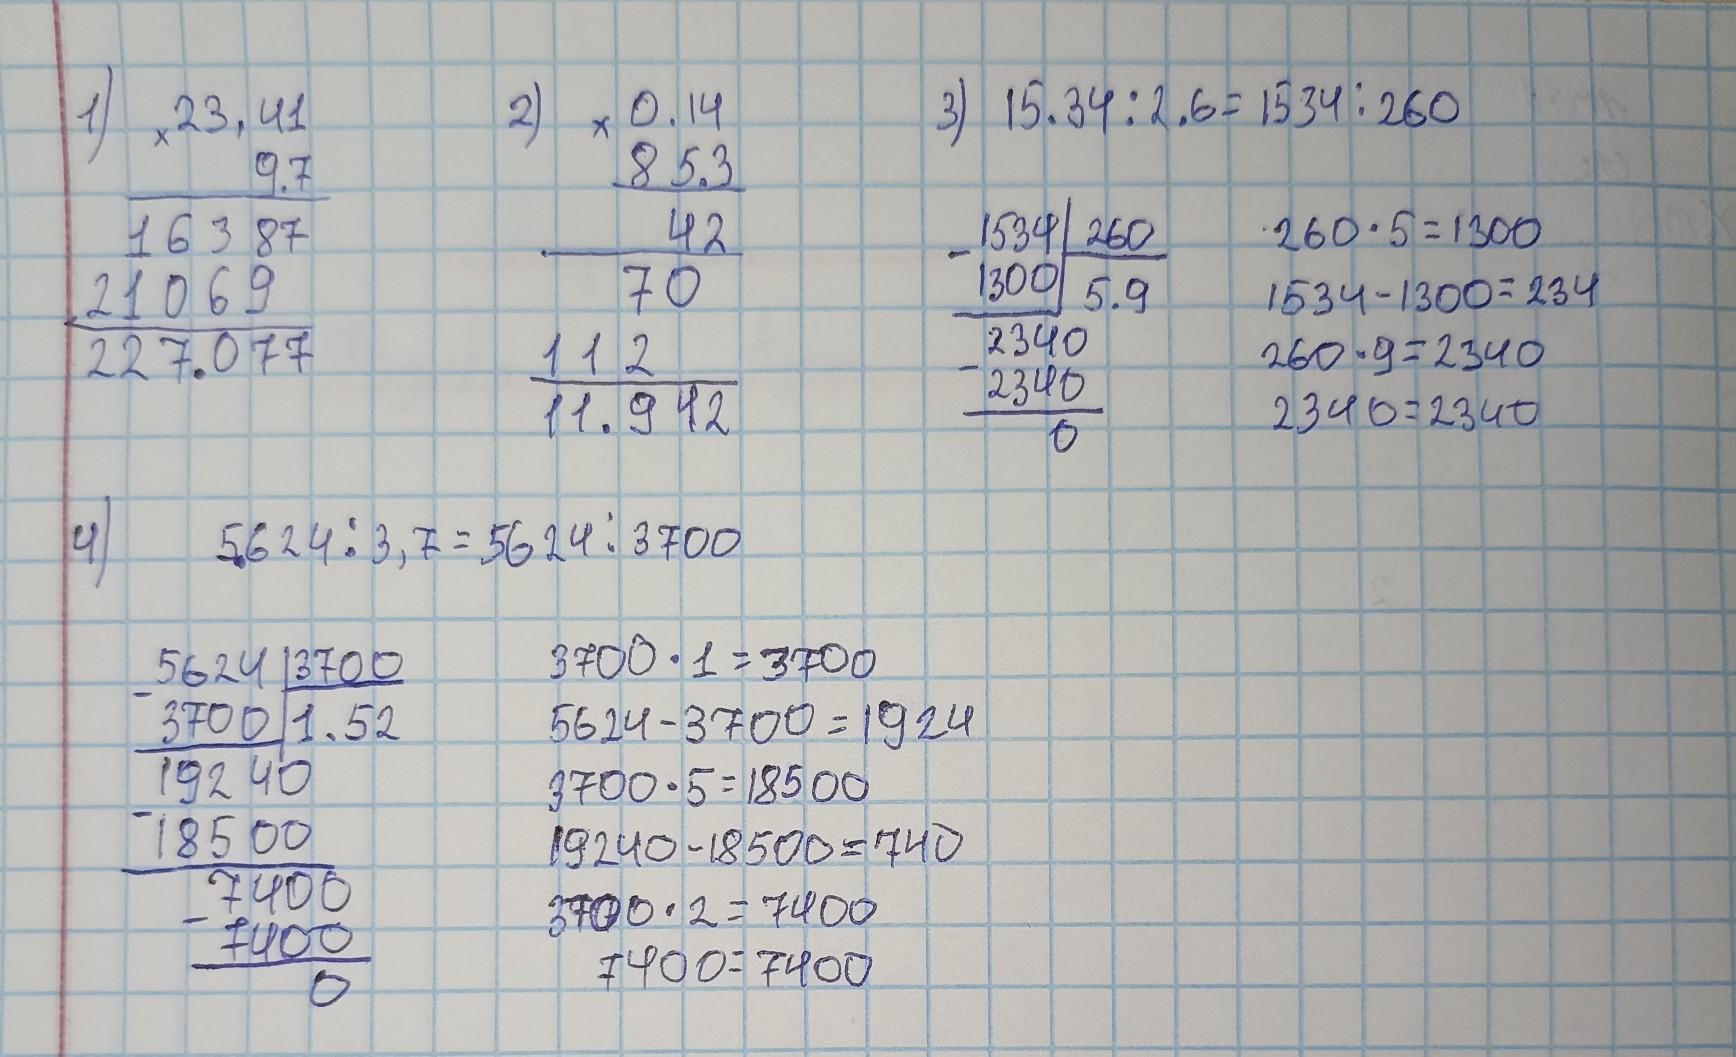 1) × 23,41
9.7
16387
21069
227.077
2) × 0.14
85.3
42
70
112
11.942
3) 15.34:2.6=1534:260
- 1534 260
1300 5.9
2340
- 2340
0
260·5=1300
1534-1300=234
260·9=2340
2340=2340
4) 5.624:3,7=5624:3700
- 5624 3700
3700 1.52
19240
- 18500
7400
- 7400
0
3700·1=3700
5624-3700=1924
3700·5=18500
19240-18500=740
3700·2=7400
7400=7400